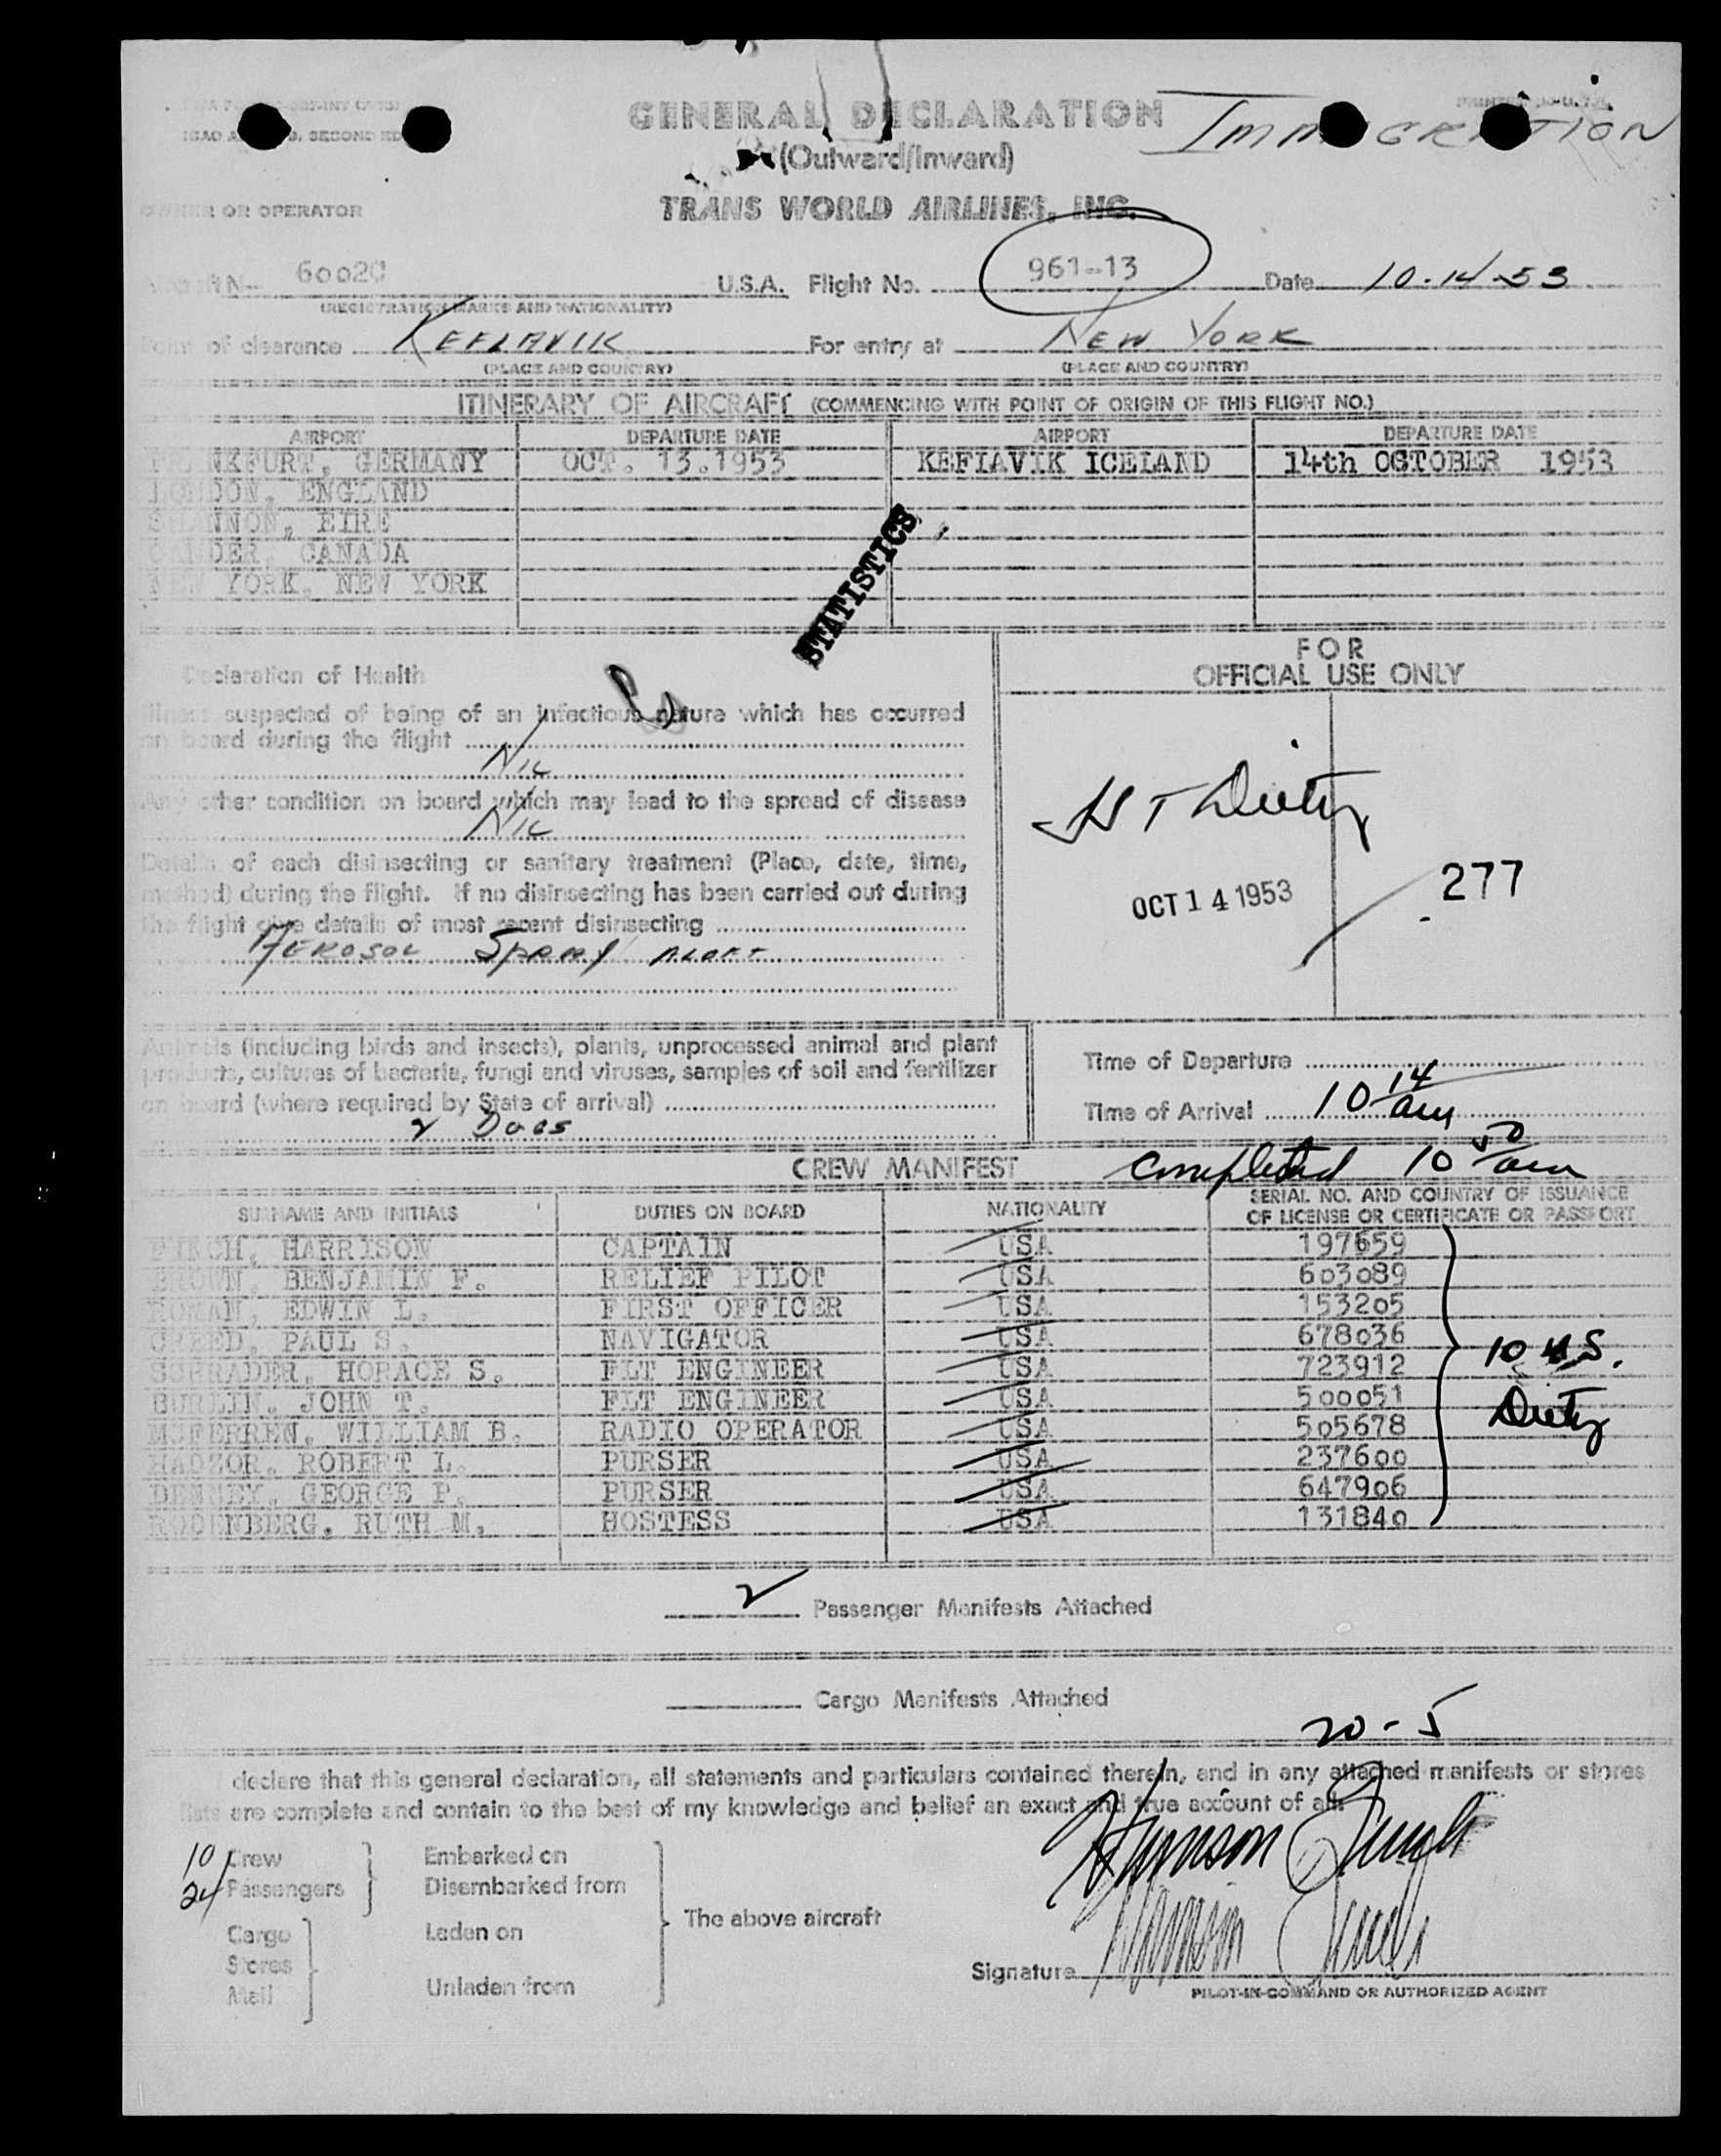 GENERAL DECLARATION
IMMIGRATION
(Outward/Inward)
OWNER OR OPERATOR TRANS WORLD AIRLINES, INC.
Aircraft N- 6002C U.S.A. Flight No. 961-13 Date 10-14-53
(REGISTRATION MARKS AND NATIONALITY)
Point of clearance KEFLAVIK For entry at NEW YORK
(PLACE AND COUNTRY) (PLACE AND COUNTRY)
ITINERARY OF AIRCRAFT (COMMENCING WITH POINT OF ORIGIN OF THIS FLIGHT NO.)
AIRPORT DEPARTURE DATE AIRPORT DEPARTURE DATE
FRANKFURT, GERMANY OCT. 13.1953 KEFIAVIK ICELAND 14th OCTOBER 1953
LONDON, ENGLAND
SHANNON, EIRE
GANDER, CANADA
NEW YORK, NEW YORK
STATISTICS
Declaration of Health
Illness suspected of being of an infectious nature which has occurred
on board during the flight
NIL
Any other condition on board which may lead to the spread of disease
NIL
Details of each disinsecting or sanitary treatment (Place, date, time,
method) during the flight. If no disinsecting has been carried out during
the flight give details of most recent disinsecting
AEROSOL SPRAY ALOFT
FOR
OFFICIAL USE ONLY
H T Dietz
OCT 14 1953
277
Animals (including birds and insects), plants, unprocessed animal and plant
products, cultures of bacteria, fungi and viruses, samples of soil and fertilizer
on board (where required by State of arrival)
2 DOGS
Time of Departure
Time of Arrival 10 14 am
CREW MANIFEST completed 10 50 am
SURNAME AND INITIALS DUTIES ON BOARD NATIONALITY SERIAL NO. AND COUNTRY OF ISSUANCE OF LICENSE OR CERTIFICATE OR PASSPORT
FINCH, HARRISON CAPTAIN USA 197659
BROWN, BENJAMIN F. RELIEF PILOT USA 603089
ROMAN, EDWIN L. FIRST OFFICER USA 153205
CREED, PAUL S. NAVIGATOR USA 678036
SCHRADER, HORACE S. FLT ENGINEER USA 723912
BURLIN, JOHN T. FLT ENGINEER USA 500051
MCFERREN, WILLIAM B. RADIO OPERATOR USA 505678
HADZOR, ROBERT L. PURSER USA 237600
DENNEY, GEORGE P. PURSER USA 647906
RODENBERG, RUTH M. HOSTESS USA 131840
10 U.S.
Dietz
2 Passenger Manifests Attached
Cargo Manifests Attached
20-5
declare that this general declaration, all statements and particulars contained therein, and in any attached manifests or stores
lists are complete and contain to the best of my knowledge and belief an exact and true account of all
Harrison Finch
10 Crew Embarked on
24 Passengers Disembarked from
The above aircraft
Cargo Laden on
Stores
Mail Unladen from
Signature Harrison Finch
PILOT-IN-COMMAND OR AUTHORIZED AGENT